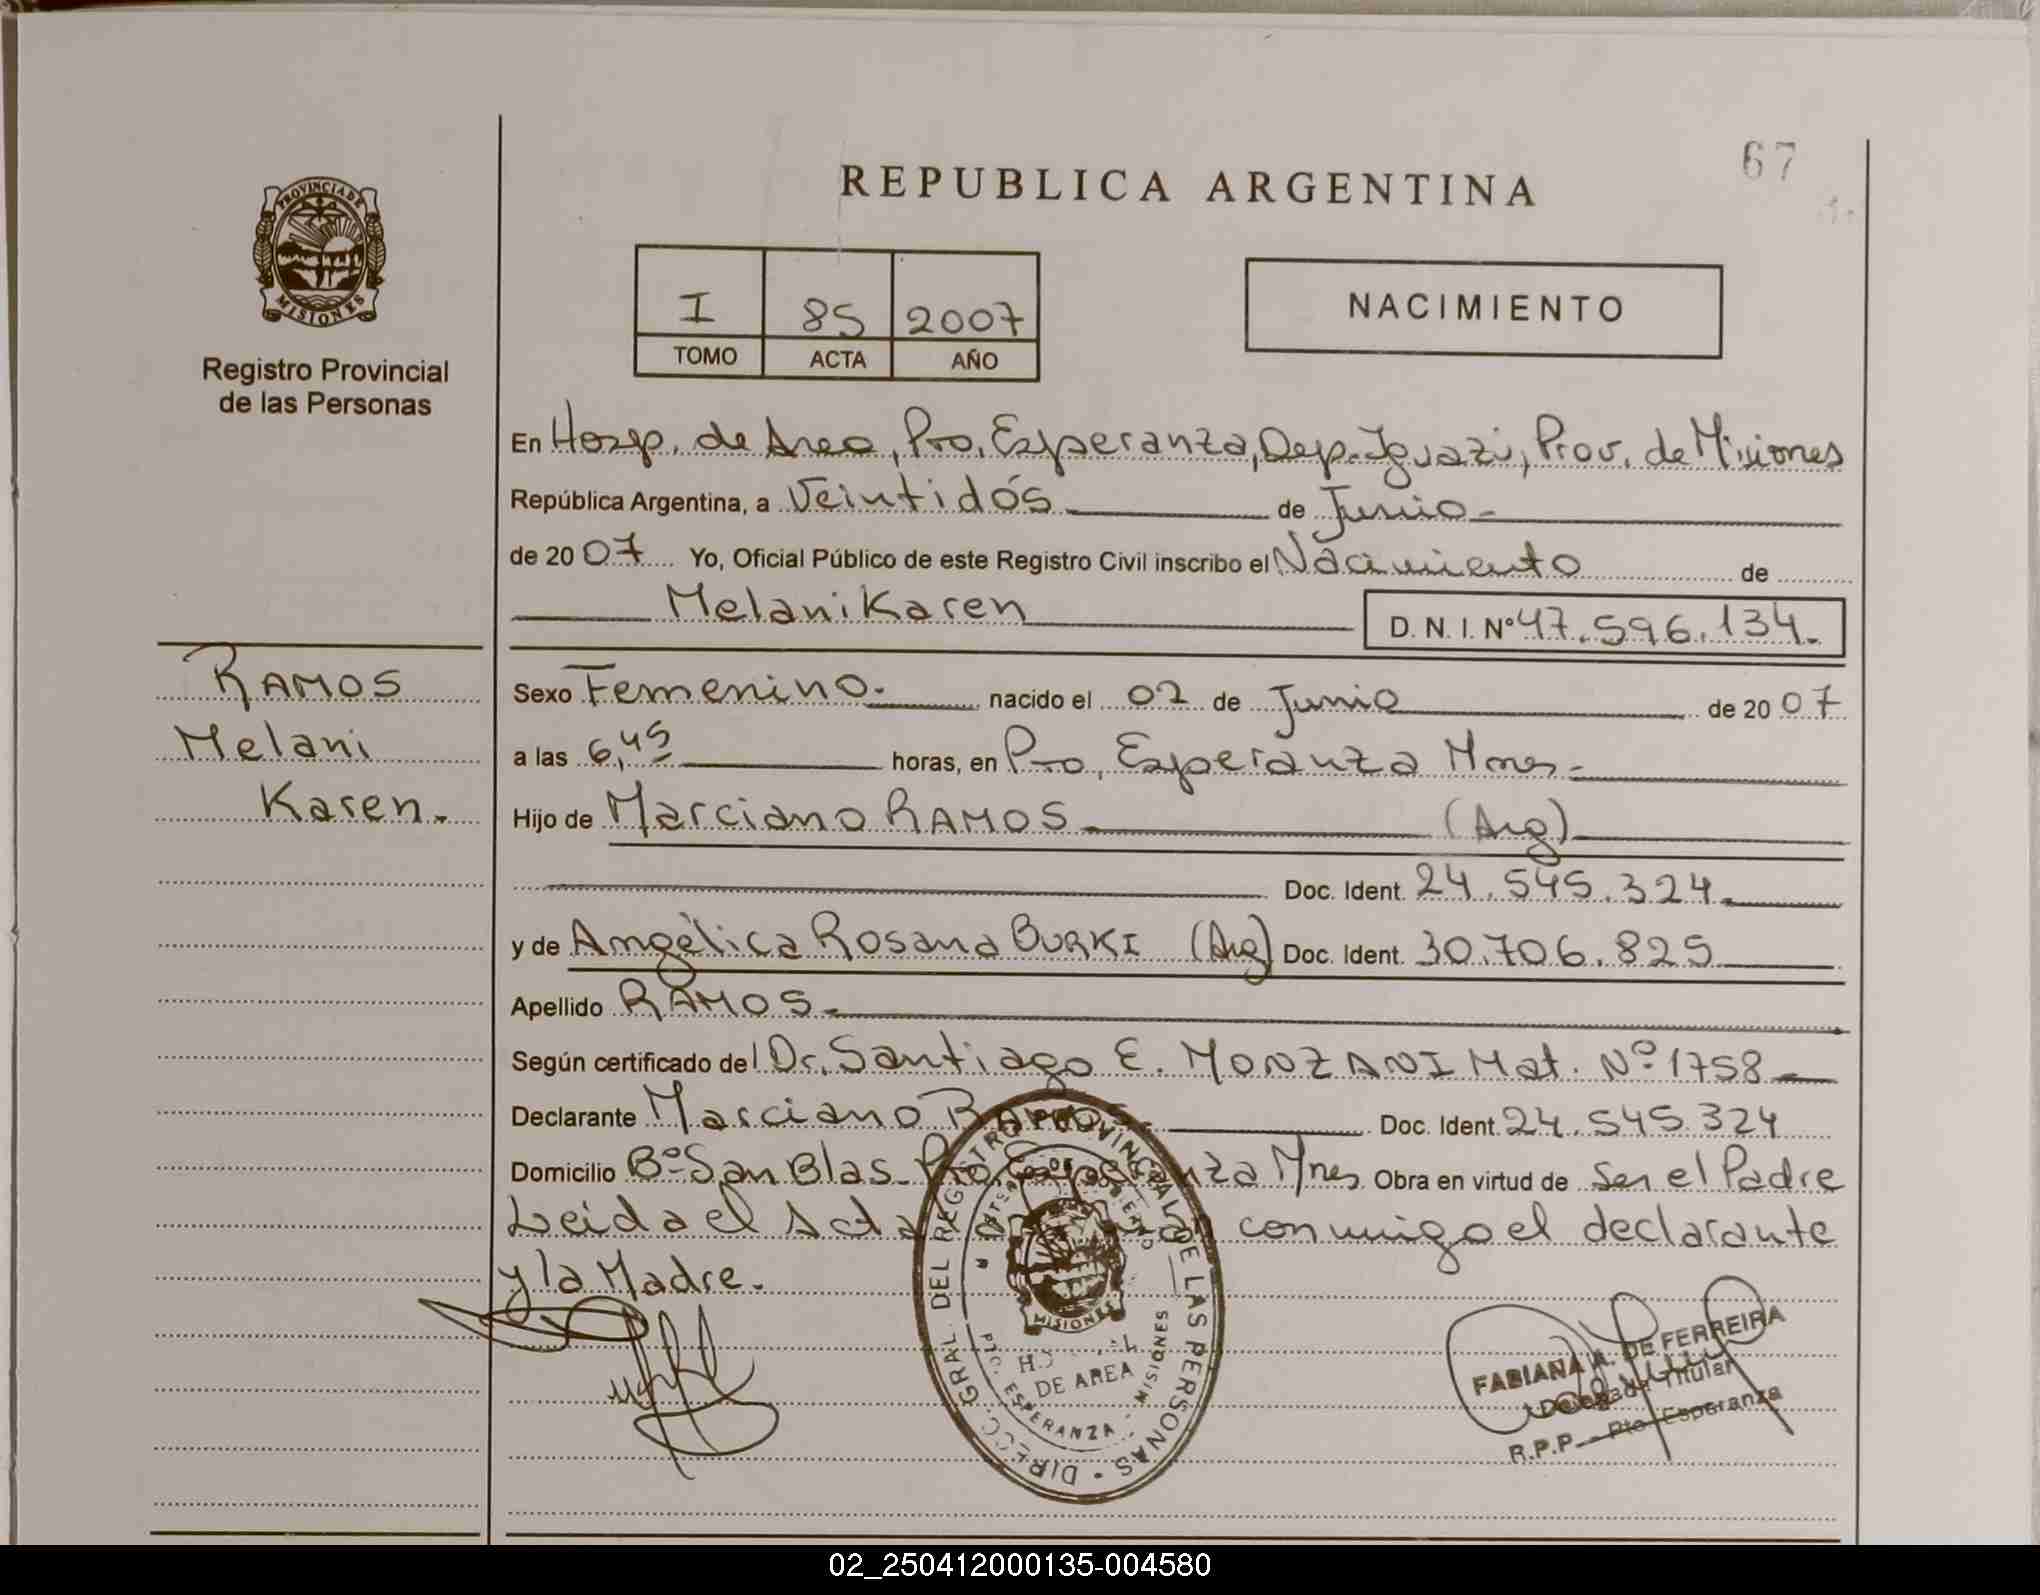 67
REPUBLICA ARGENTINA
PROVINCIA DE
MISIONES
Registro Provincial
de las Personas
I 85 2007
TOMO ACTA AÑO
NACIMIENTO
En Hosp. de Area, Pto. Esperanza, Dep. Iguazú, Prov. de Misiones
República Argentina, a Veintidós de Junio
de 2007 Yo, Oficial Público de este Registro Civil inscribo el Nacimiento de
Melani Karen D. N. I. Nº 47.596.134.
RAMOS
Melani
Karen.
Sexo Femenino. nacido el 02 de Junio de 2007
a las 6,45 horas, en Pto. Esperanza Mnes.
Hijo de Marciano RAMOS (Arg)
Doc. Ident. 24.545.324.
y de Angélica Rosana BURKI (Arg) Doc. Ident. 30.706.825
Apellido RAMOS.
Según certificado del Dr. Santiago E. MONZANI Mat. Nº 1758
Declarante Marciano RAMOS. Doc. Ident. 24.545.324
Domicilio Bº San Blas Pto. Esperanza Mnes Obra en virtud de Ser el Padre
Leida el Acta conmigo el declarante
y la Madre.
DIRECC. GRAL. DEL REGISTRO PROVINCIAL DE LAS PERSONAS
MISIONES
DE AREA
PTO. ESPERANZA - MISIONES
FABIANA A. DE FERREIRA
Delegada Titular
R.P.P. Pto. Esperanza
02_250412000135-004580